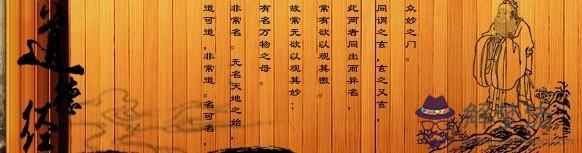 道德经
道可道,非常道。名可名,
非常名。无名天地之始,
有名万物之母。
故常无欲以观其妙;
常有欲以观其徼。
此两者同出而异名,
同谓之玄,玄之又玄,
众妙之门。